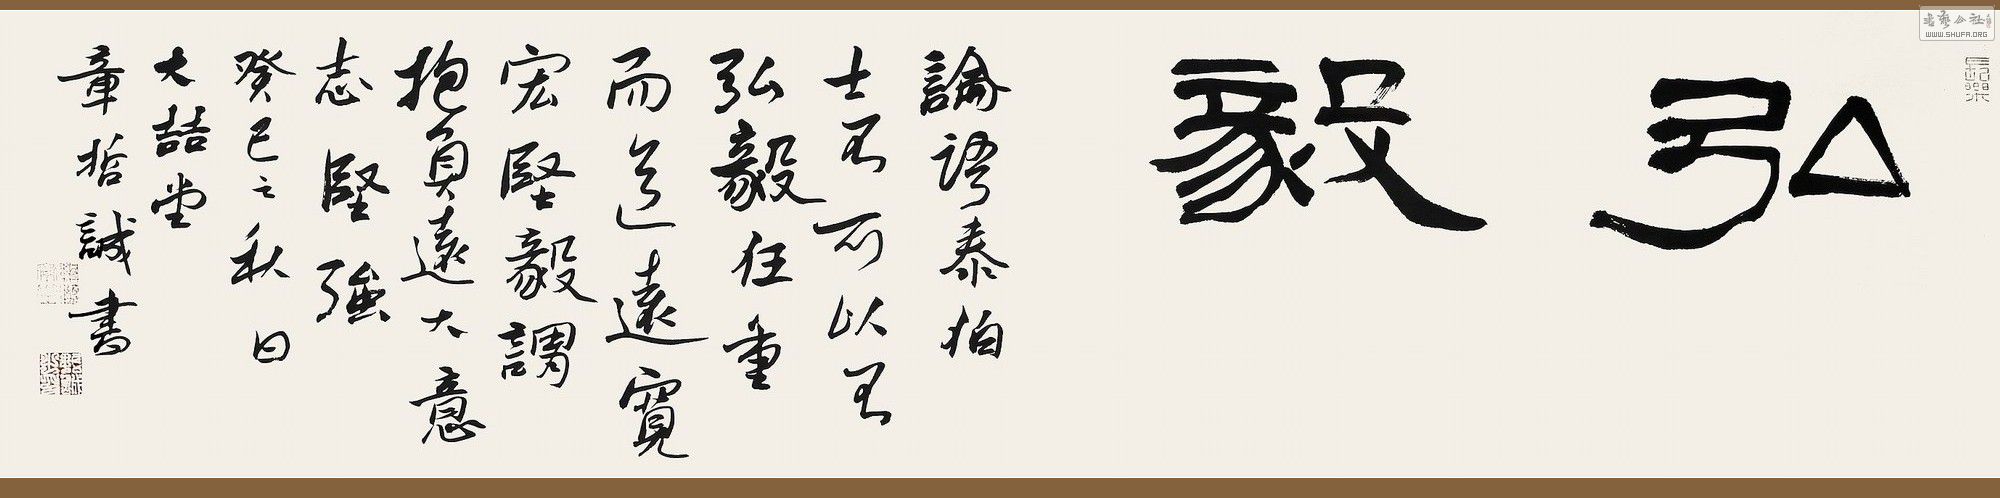 弘毅
論語泰伯
士不可以不
弘毅任重
而道遠寬
宏堅毅謂
抱負遠大意
志堅強
癸巳之秋日
大喆堂
章哲誠書
長樂
WWW.SHUFA.ORG